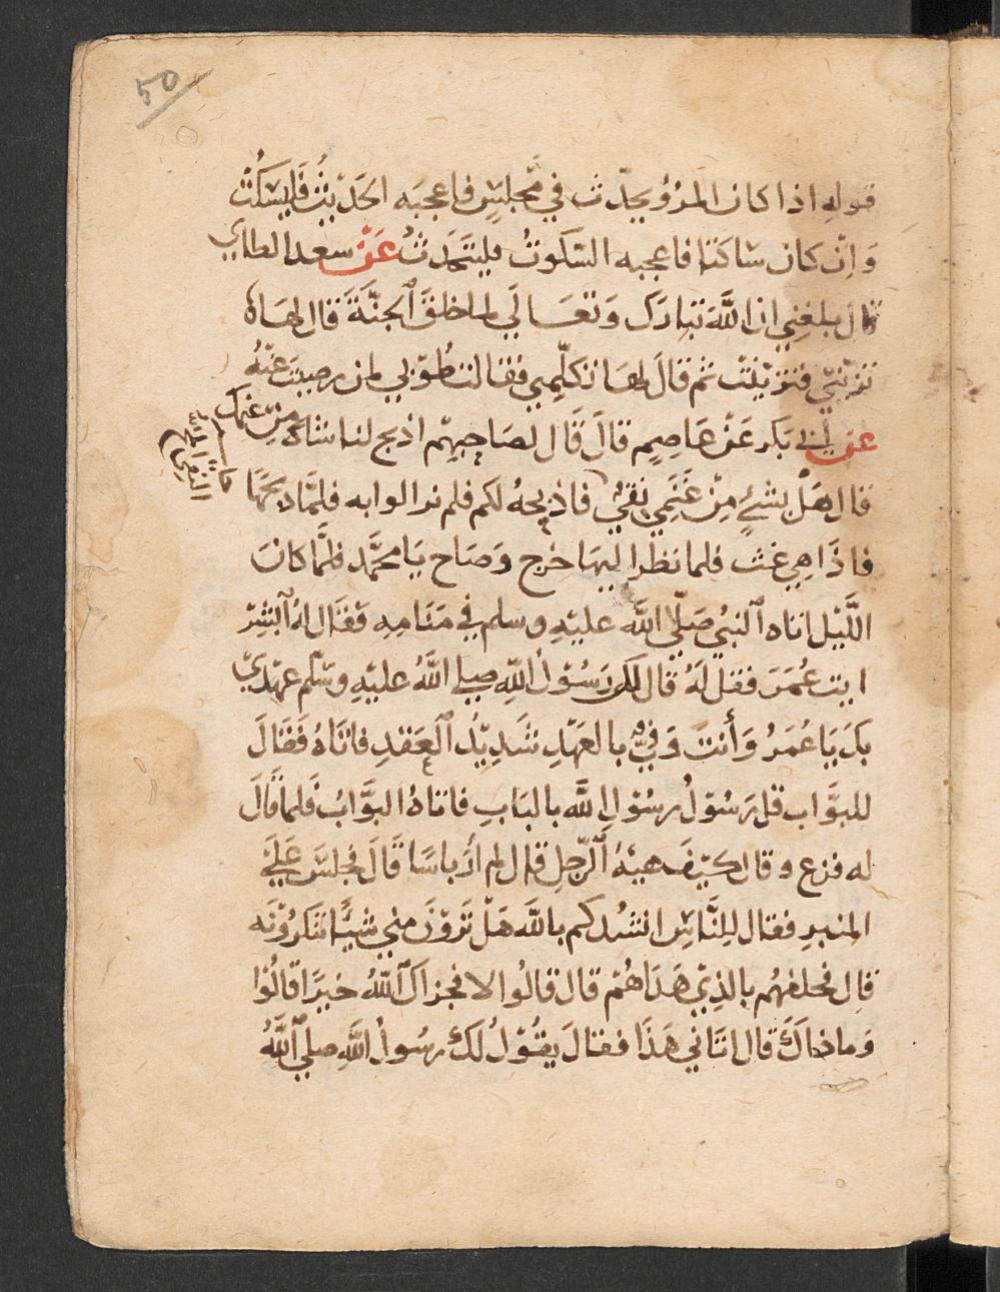 50
قوله اذا كان المرؤ يحدّث في مَّجلسٍ فاعجبَه الحَدْيثُ فَليسْكُتْ
وَاِنْ كان سَاكتًا فاعجبه السّكوتُ فليتَحَدثْ عَنْ سعد الطاىِ
قال بلغنِي ان اللَّهَ تبارَك وَتعَالَي لما خلقَ الجنَّةَ قال لهَا
تزيّني فتزيّنتْ ثم قالَ لهَا تكلّمِي فقالت طُوْبي لمن رضيتَ عَنْهُ
عن ابي بَكر عَنْ عَاصِمٍ قالَ قَال لصَاحِبهِم اذبح لنا شاة مِنْ غنمك
قال هَلْ بشئٍ مِنْ غَنَمِي نَقيٌ فاذبحهُ لكم فلم نرالوا به فلمَّا ذبحهَا
فاذَا هِي غث فلما نظر اليهَا خرج وَصَاح يَا محمَّد فلمَّا كانَ
اللَّيْل اتاه النبيُ صَلّي اللَّه عليْهِ وسلم فِي مَنَامِه فَقَال لهُ اَبْشِرْ
ايت عُمَرَ فقل لَهُ قَال لك رَسُوْل اللّهِ صلي اللَّهُ عليْهِ وسَلّم عهْدِيْ
بكَ يَا عُمَرُ وَأنتَ وَفيٌّ بالعَهْدِ شَدِيْدُ العَقدِ فاتَاهُ فَقَالَ
للبوَّاب قل رَسُوْلُ رسُوْلِ اللَّه بالبَابِ فاتاهُ البوَّابُ فلما قَالَ
له فزع وقال كيْفَ هيئهُ الرّجلِ قال لم اَرَ باسَا قَالَ فجلسَ عَلَيَ
المنبرِ فقال للِنَّاسِ انشُدكم باللَّهِ هَلْ تَرَوْنَ مني شيًا تنكرُوْنَه
قال فحلفهُم بالذِيْ هَدَاهُمْ قال قالُوا لا فجزاك اللهُ خيرًا قَالُوا
وَما ذاكَ قال اتَاني هَذَا فقالَ يقُوْلُ لكَ رسُولُ اللَّهِ صلي اللَّهُ